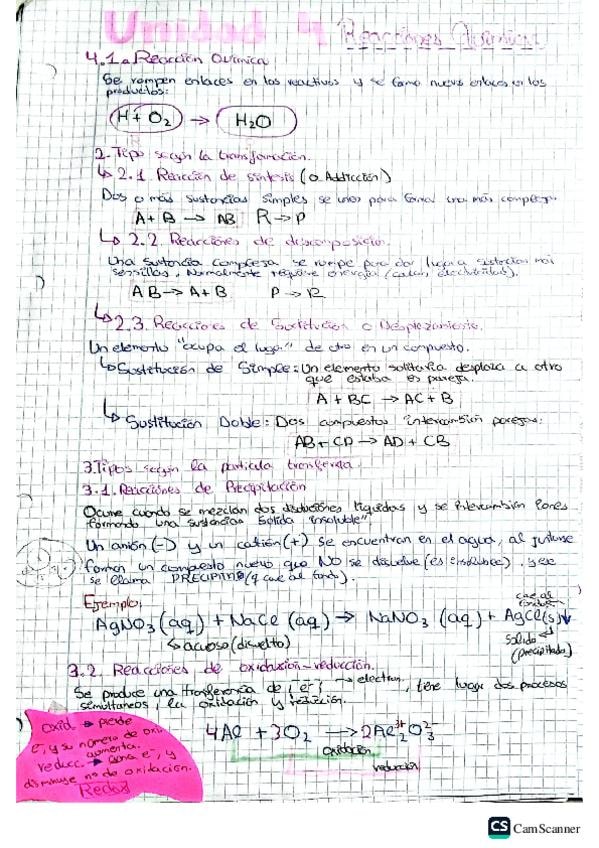 Unidad 4 Reacciones Químicas
4.1. Reacción Química
Se rompen enlaces en los reactivos y se forma nuevos enlaces en los
productos:
H + O₂ → H₂O
2. Tipo según la transformación.
↳ 2.1. Reacción de síntesis (o Addicción)
Dos o más sustancias simples se unes para formar una más compleja.
A + B → AB R → P
↳ 2.2. Reacciones de descomposición.
Una sustancia compleja se rompe para dar lugar a sustancias más
sencillas. Normalmente require energía (calor, electricidad).
AB → A + B P → R
↳ 2.3. Reacciones de Sustitución o Desplazamiento.
Un elemento "ocupa el lugar" de otro en un compuesto.
↳ Sustitución de Simple: Un elemento solitario desplaza a otro
que estaba es pareja.
A + BC → AC + B
↳ Sustitución Doble: Dos compuestos intercambian parejas.
AB + CD → AD + CB
3. Tipos según la partícula transferida.
3.1. Reacciones de Precipitación
Ocurre cuando se mezclan dos disoluciones líquidas y se intercambian iones
formando una sustancias sólida "insoluble"
Un anión (-) y un catión (+) se encuentran en el agua, al juntarse
forman un compuesto nuevo que NO se disuelve (es insoluble), y ese
se llama PRECIPITADO (q cae al fondo).
Ejemplo:
cae al
fondo
AgNO₃ (aq) + NaCl (aq) → NaNO₃ (aq) + AgCl (s)↓
↳ acuoso (disuelto)
sólido
(precipitado)
3.2. Reacciones de oxidación-reducción.
Se produce una transferencia de (e⁻) → electron, tiene lugar dos procesos
simultaneos, la oxidación y reducción.
4Al + 3O₂ → 2Al₂³⁺O₃²⁻
oxidación
reducción
oxid → pierde
e⁻, y su número de oxi
aumenta.
reducc → gana e⁻, y
disminuye nº de oxidación.
Redox
CS CamScanner